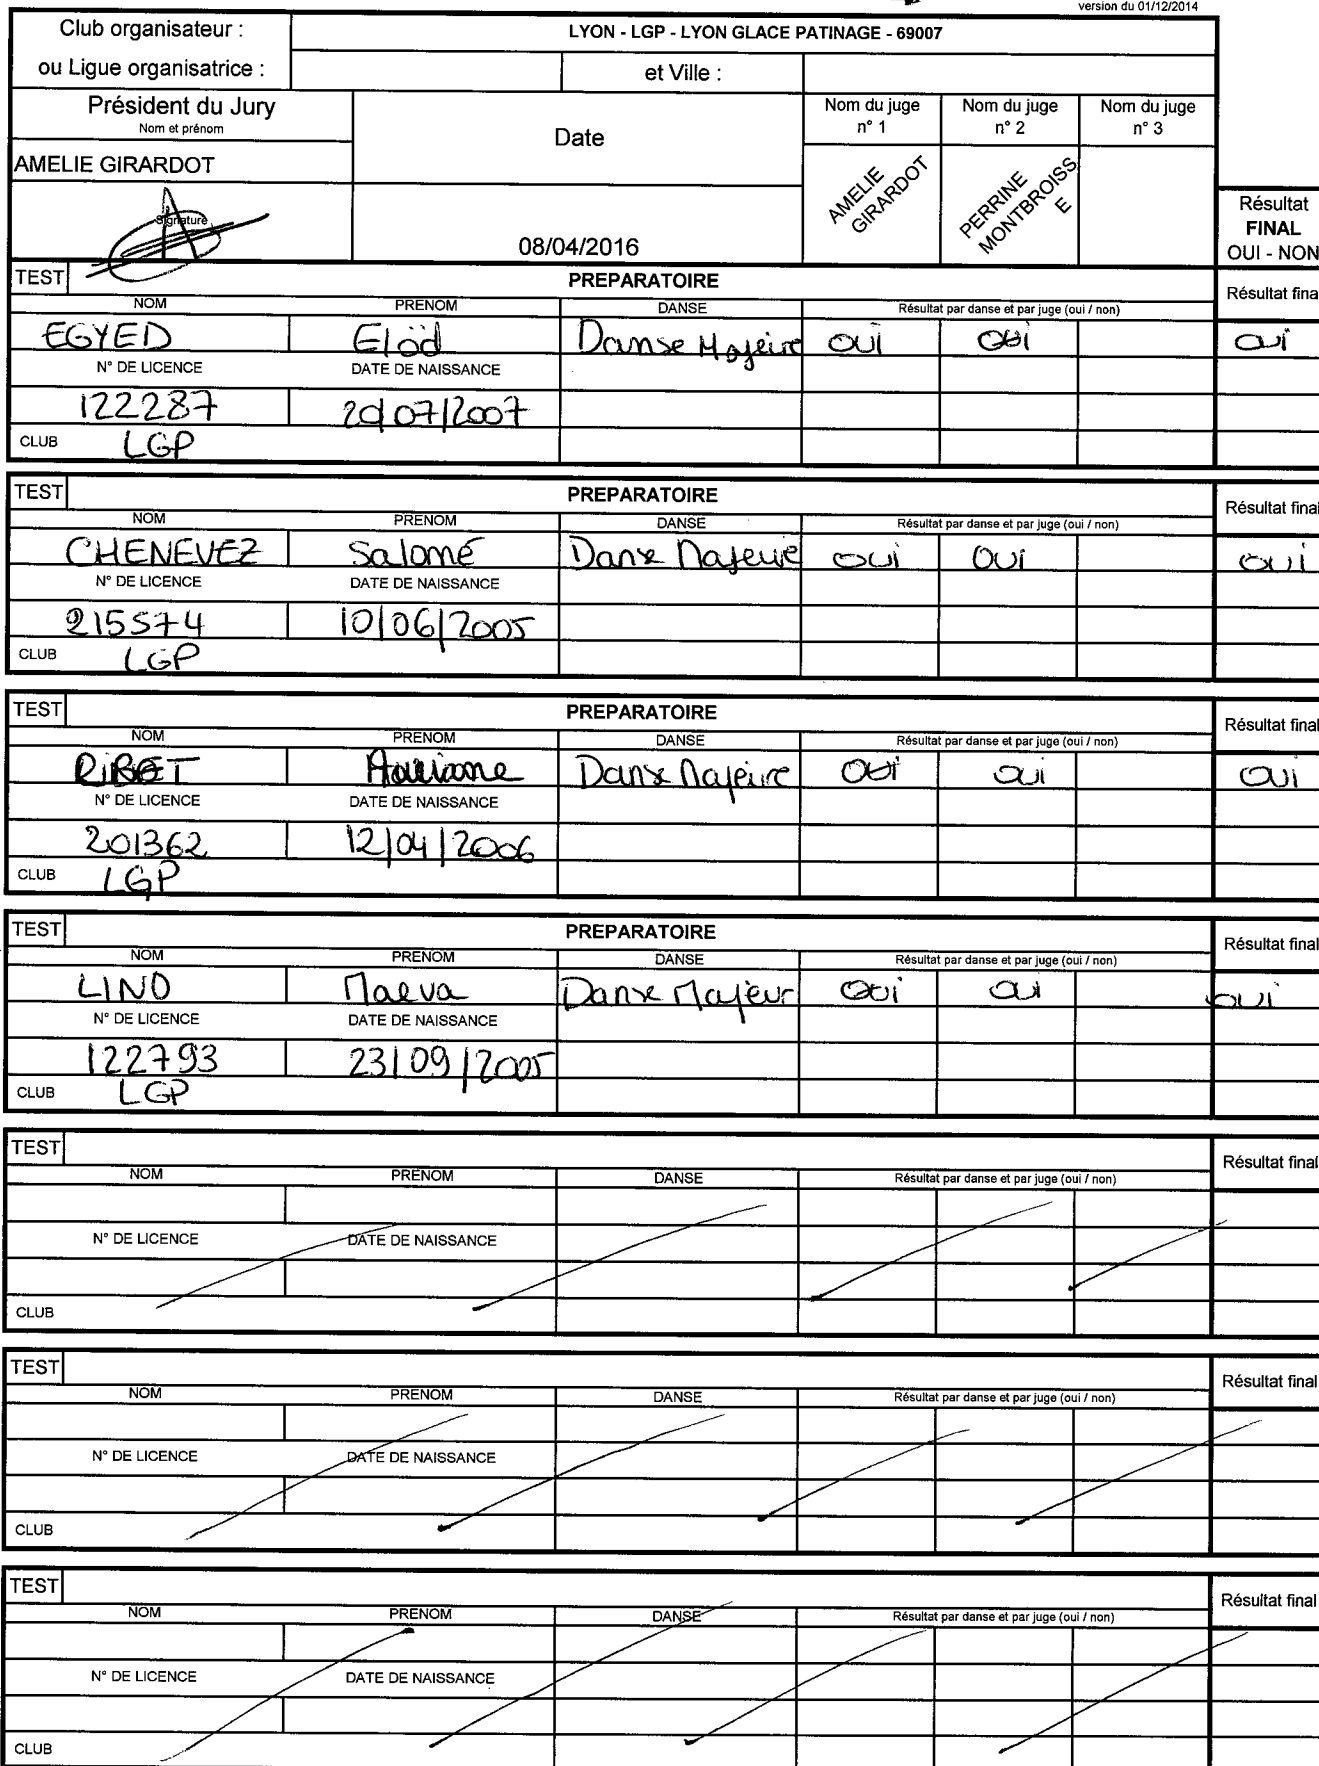 version du 01/12/2014
Club organisateur : LYON - LGP - LYON GLACE PATINAGE - 69007
ou Ligue organisatrice : et Ville :
Président du Jury
Nom et prénom
AMELIE GIRARDOT
Signature
Date
08/04/2016
Nom du juge n° 1
Nom du juge n° 2
Nom du juge n° 3
AMELIE GIRARDOT
PERRINE MONTBROISS E
Résultat
FINAL
OUI - NON
TEST PREPARATOIRE Résultat final
NOM PRENOM DANSE Résultat par danse et par juge (oui / non)
EGYED Elöd Danse Majeure oui oui oui
N° DE LICENCE DATE DE NAISSANCE
122287 20/07/2007
CLUB LGP
TEST PREPARATOIRE Résultat final
NOM PRENOM DANSE Résultat par danse et par juge (oui / non)
CHENEVEZ Salomé Danse Majeure oui oui oui
N° DE LICENCE DATE DE NAISSANCE
215574 10/06/2005
CLUB LGP
TEST PREPARATOIRE Résultat final
NOM PRENOM DANSE Résultat par danse et par juge (oui / non)
RIBOT Danse Majeure oui oui oui
N° DE LICENCE DATE DE NAISSANCE
201362 12/04/2006
CLUB LGP
TEST PREPARATOIRE Résultat final
NOM PRENOM DANSE Résultat par danse et par juge (oui / non)
LINO Maeva Danse Majeur oui oui oui
N° DE LICENCE DATE DE NAISSANCE
122793 23/09/2005
CLUB LGP
TEST Résultat final
NOM PRENOM DANSE Résultat par danse et par juge (oui / non)
N° DE LICENCE DATE DE NAISSANCE
CLUB
TEST Résultat final
NOM PRENOM DANSE Résultat par danse et par juge (oui / non)
N° DE LICENCE DATE DE NAISSANCE
CLUB
TEST Résultat final
NOM PRENOM DANSE Résultat par danse et par juge (oui / non)
N° DE LICENCE DATE DE NAISSANCE
CLUB